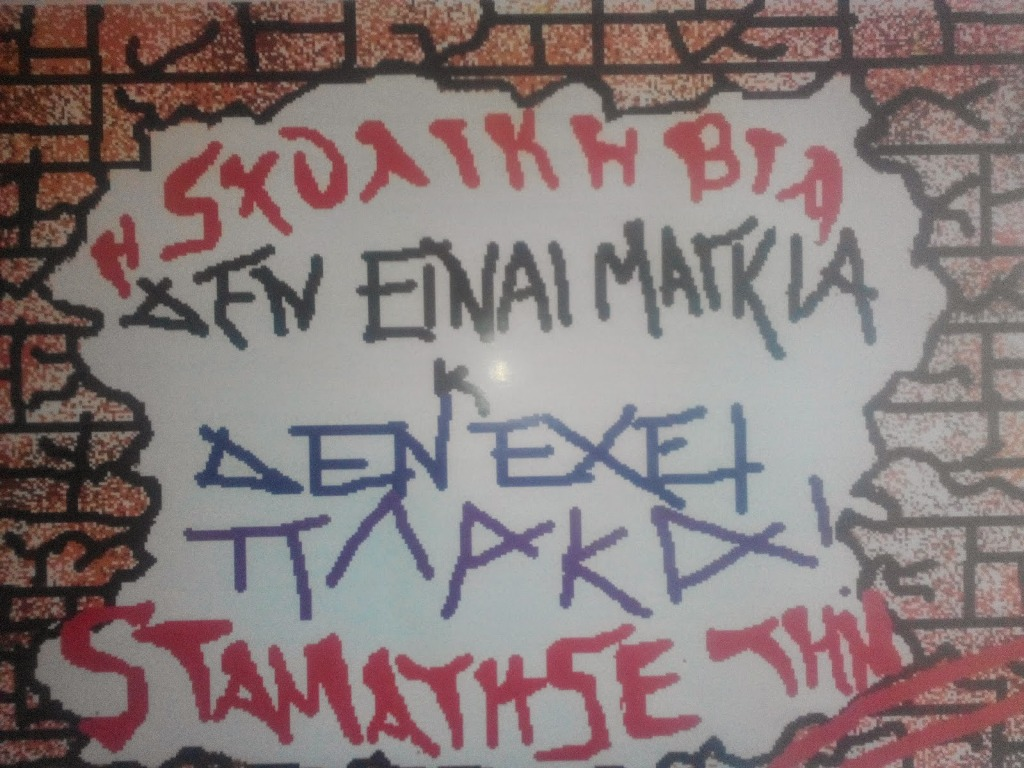 Η SΧΟΛΙΚΗ ΒΙΑ
ΔΕΝ ΕΙΝΑΙ ΜΑΓΚΙΑ
Κ
ΔΕΝ ΕΧΕΙ
ΠΛΑΚΑ!
SΤΑΜΑΤΗSΕ ΤΗΝ